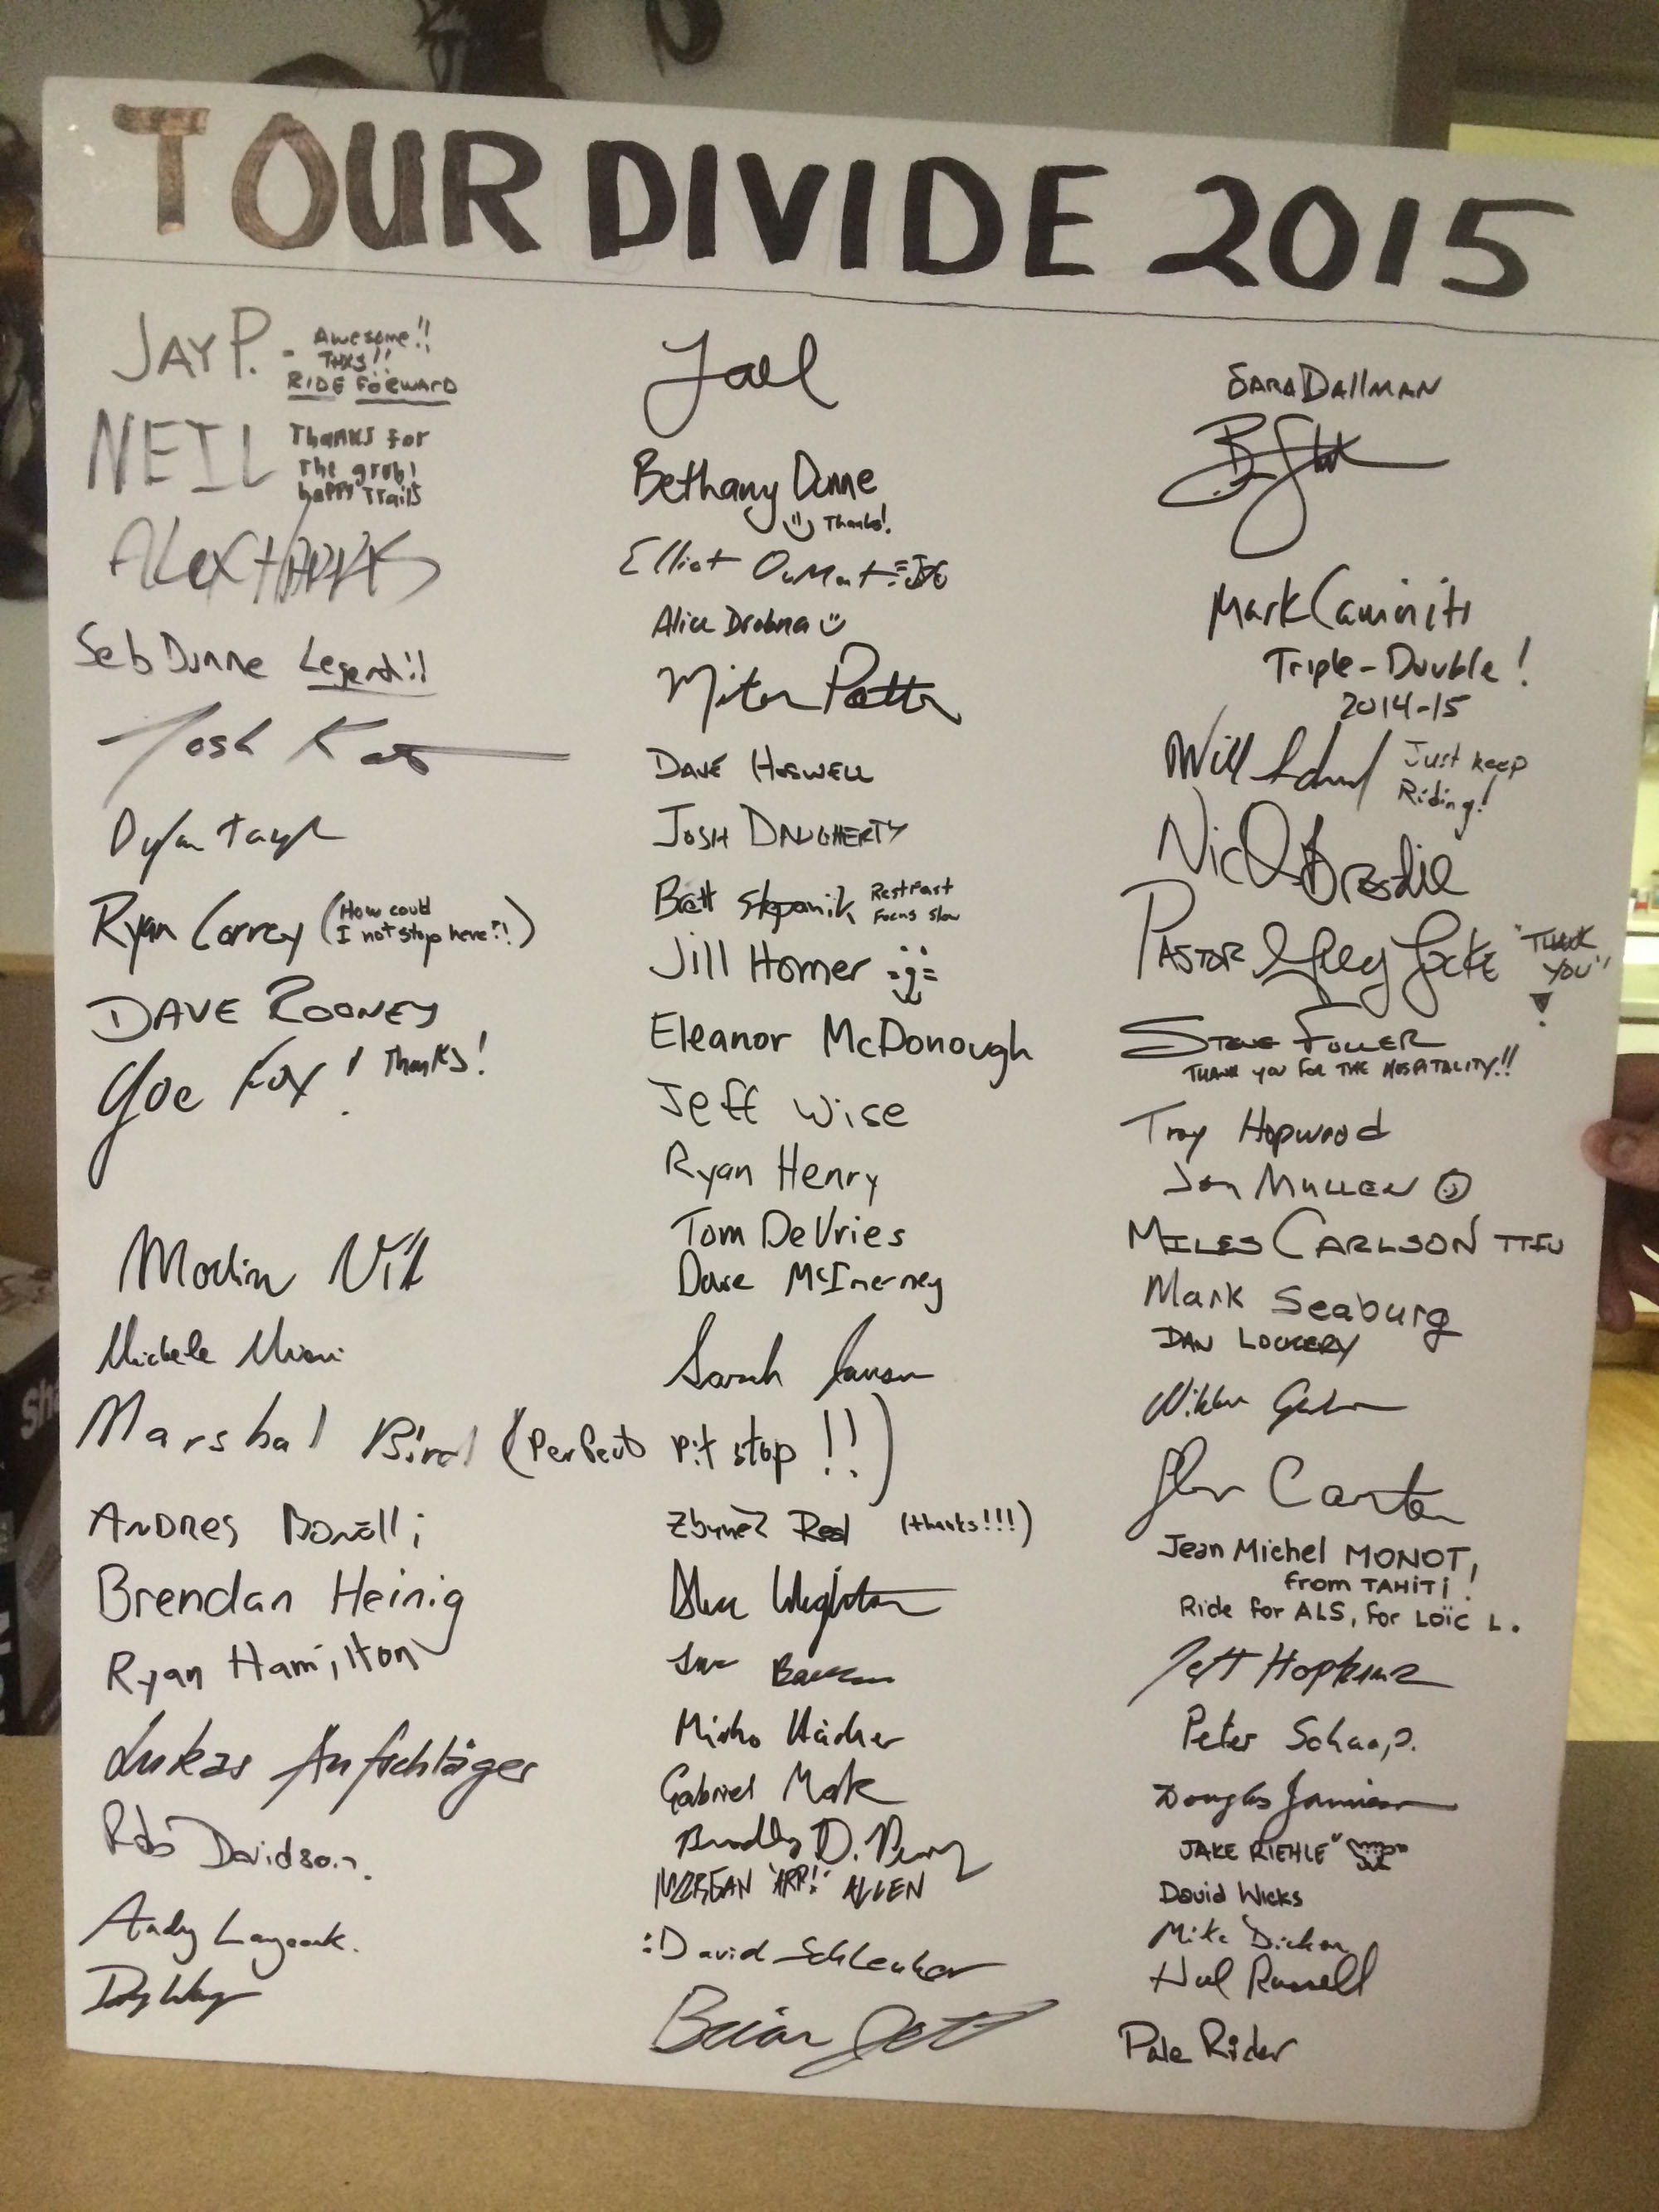 TOUR DIVIDE 2015
JAY P. - Awesome!!
THKS!!
RIDE FORWARD
NEIL Thanks for
The grub!
happy Trails
Alex Harris
Seb Dunne Legend!!
Josh Kato
Dylan Taylor
Ryan Correy (How could
I not stop here?!)
DAVE ROONEY
Joe Fox! Thanks!
Michele
Marshal Bird (Perfect pit stop!!)
ANDRES Bonelli
Brendan Heinig
Ryan Hamilton
Lukas Aufschläger
Rob Davidson.
Andy Laycock.
Bethany Dunne
Thanks!
Elliot
Alice Drobna
DAVE
JOSH DAUGHERTY
Brett Stepanik Rest Fast
Focus Slow
Jill Homer
Eleanor McDonough
Jeff Wise
Ryan Henry
Tom DeVries
Dave McInerney
Sarah Jansen
Zbynez (thanks!!!)
Mirko Häcker
Gabriel
Bradley D. Perry
MORGAN "ARR!" ALLEN
:David Schlenker
Brian
SARA DALLMAN
Mark Caminiti
Triple-Double!
2014-15
Will Just keep
Riding!
Nick
PASTOR Greg Locke "THANK
YOU"
STEVE FULLER
THANK YOU FOR THE HOSPITALITY!!
Troy Hopwood
Jon MULLEN
MILES CARLSON
Mark Seaburg
DAN LOCKERY
Carter
Jean Michel MONOT,
from TAHITI!
Ride for ALS, for Loïc L.
Jeff Hopkins
Peter
Douglas
JAKE RIEHLE
David Wicks
Mike
Russell
Pale Rider